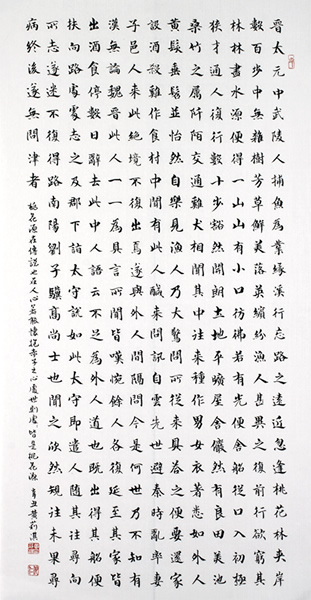 晉太元中武陵人捕魚為業緣溪行忘路之遠近忽逢桃花林夾岸
數百步中無雜樹芳草鮮美落英繽紛漁人甚異之復前行欲窮其
林林盡水源便得一山山有小口彷彿若有光便舍船從口入初極
狹才通人復行數十步豁然開朗土地平曠屋舍儼然有良田美池
桑竹之屬阡陌交通雞犬相聞其中往來種作男女衣著悉如外人
黃髮垂髫並怡然自樂見漁人乃大驚問所從來具答之便要還家
設酒殺雞作食村中聞有此人咸來問訊自雲先世避秦時亂率妻
子邑人來此絕境不復出焉遂與外人間隔問今是何世乃不知有
漢無論魏晉此人一一為具言所聞皆嘆惋餘人各復延至其家皆
出酒食停數日辭去此中人語云不足為外人道也既出得其船便
扶向路處處志之及郡下詣太守說如此太守即遣人隨其往尋向
所志遂迷不復得路南陽劉子驥高尚士也聞之欣然規往未果尋
病終後遂無問津者
桃花源在傳說也在人心若能懷抱赤子之心處世到處皆是桃花源 辛丑黃莉淇